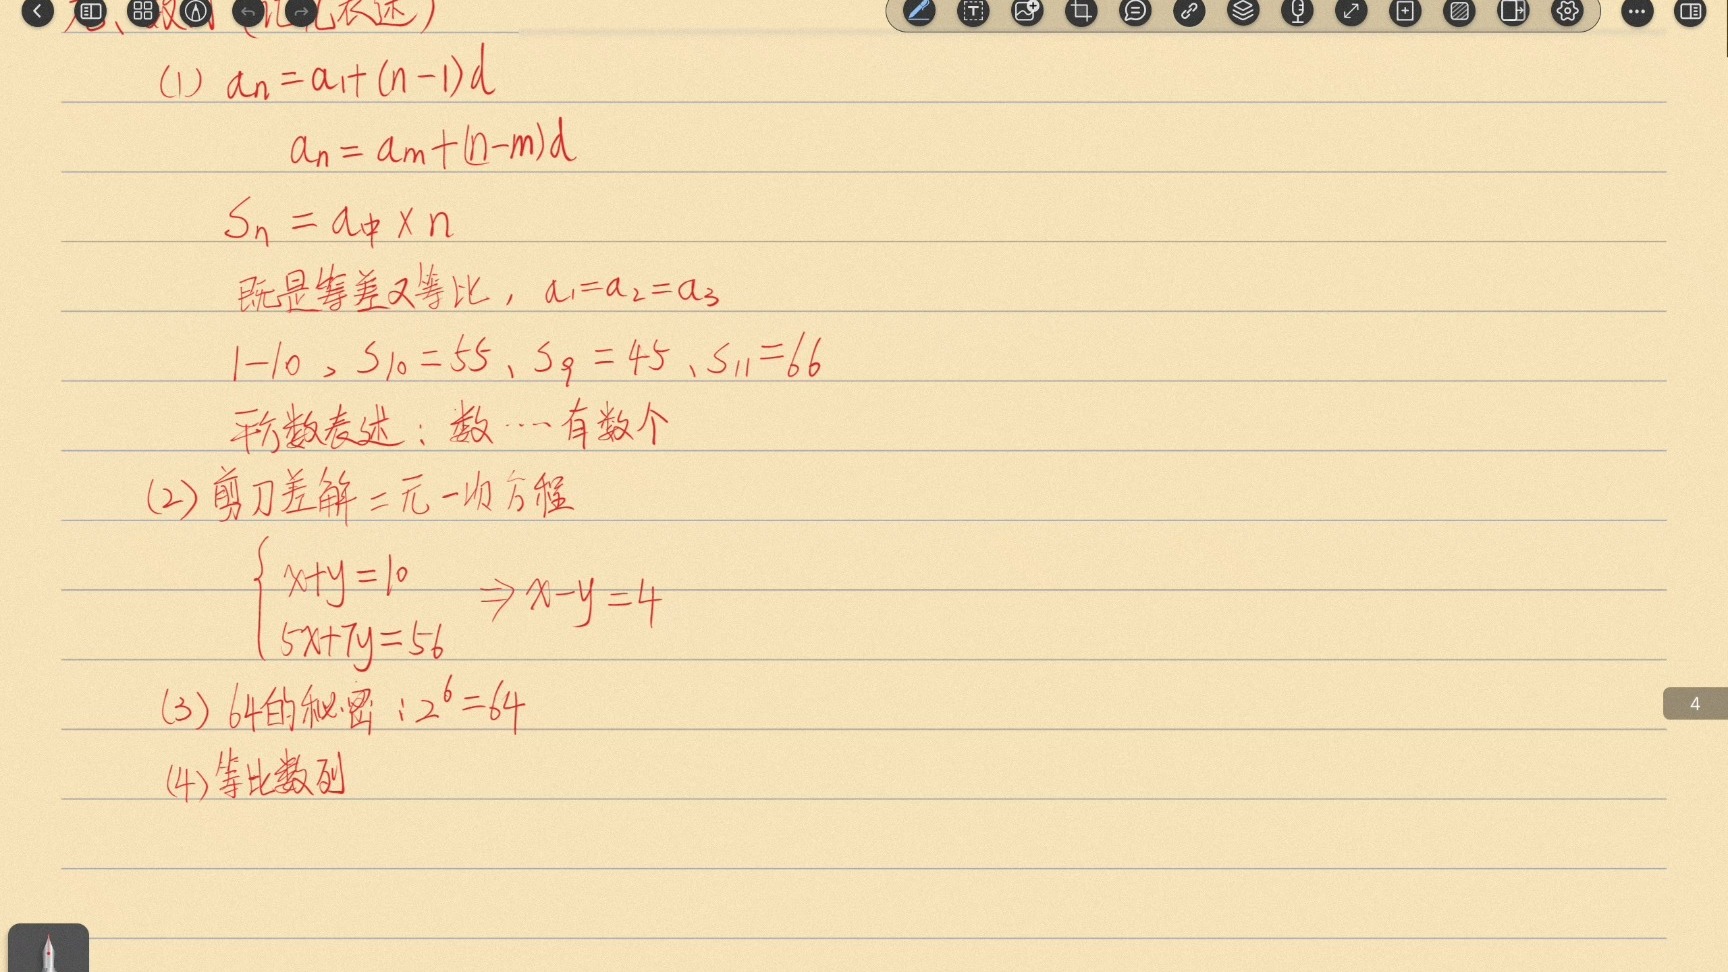 数列(记忆表述)
(1) an=a1+(n-1)d
an=am+(n-m)d
Sn=a中×n
既是等差又等比,a1=a2=a3
1-10、S10=55、S9=45、S11=66
平方数表述:数……有数个
(2)剪刀差解二元一次方程
x+y=10
5x+7y=56
⇒x-y=4
(3)64的秘密:2^6=64
4
(4)等比数列